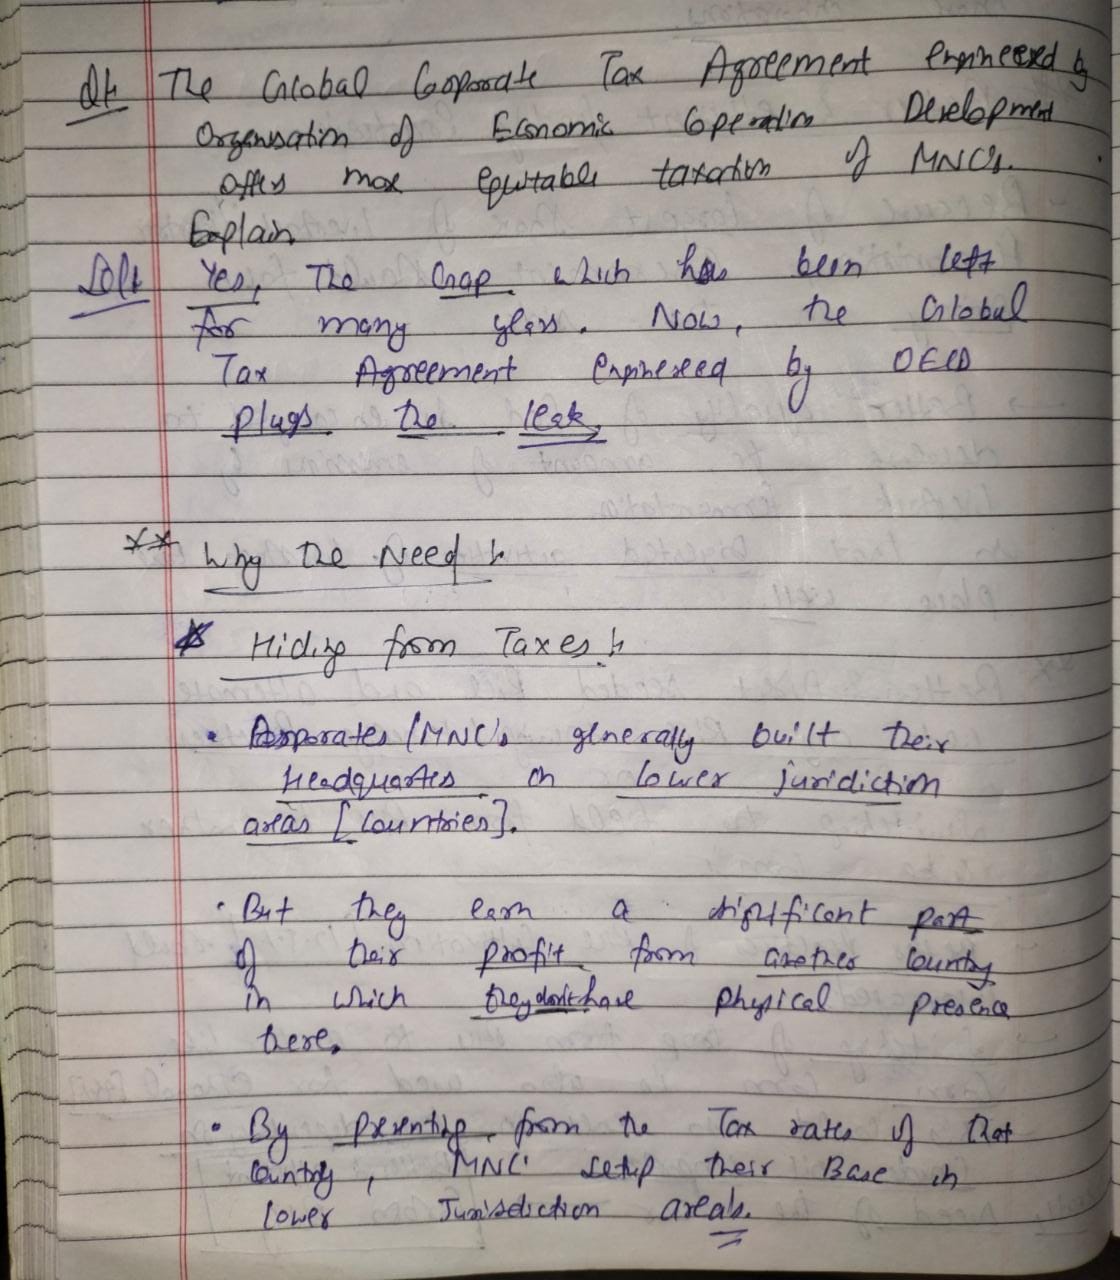 Q1: The Global Coporate Tax Agreement Engineered by
Organisation of Economic Coperation Development
offers more equitable taxation of MNC's.
Explain.
Sol: Yes, The Gap which has been left
for many years. Now, the Global
Tax Agreement Engineered by OECD
plugs the leak.
** Why the Need :-
* Hiding from Taxes :-
• Corporates/MNC's generally built their
Headquarters on lower juridiction
areas [Countries].
• But they earn a significant part
of their profit from another country
in which they don't have physical presence
there.
• By from the Tax rates of that
country, MNC' setup their Base in
lower Jurisdiction areas.